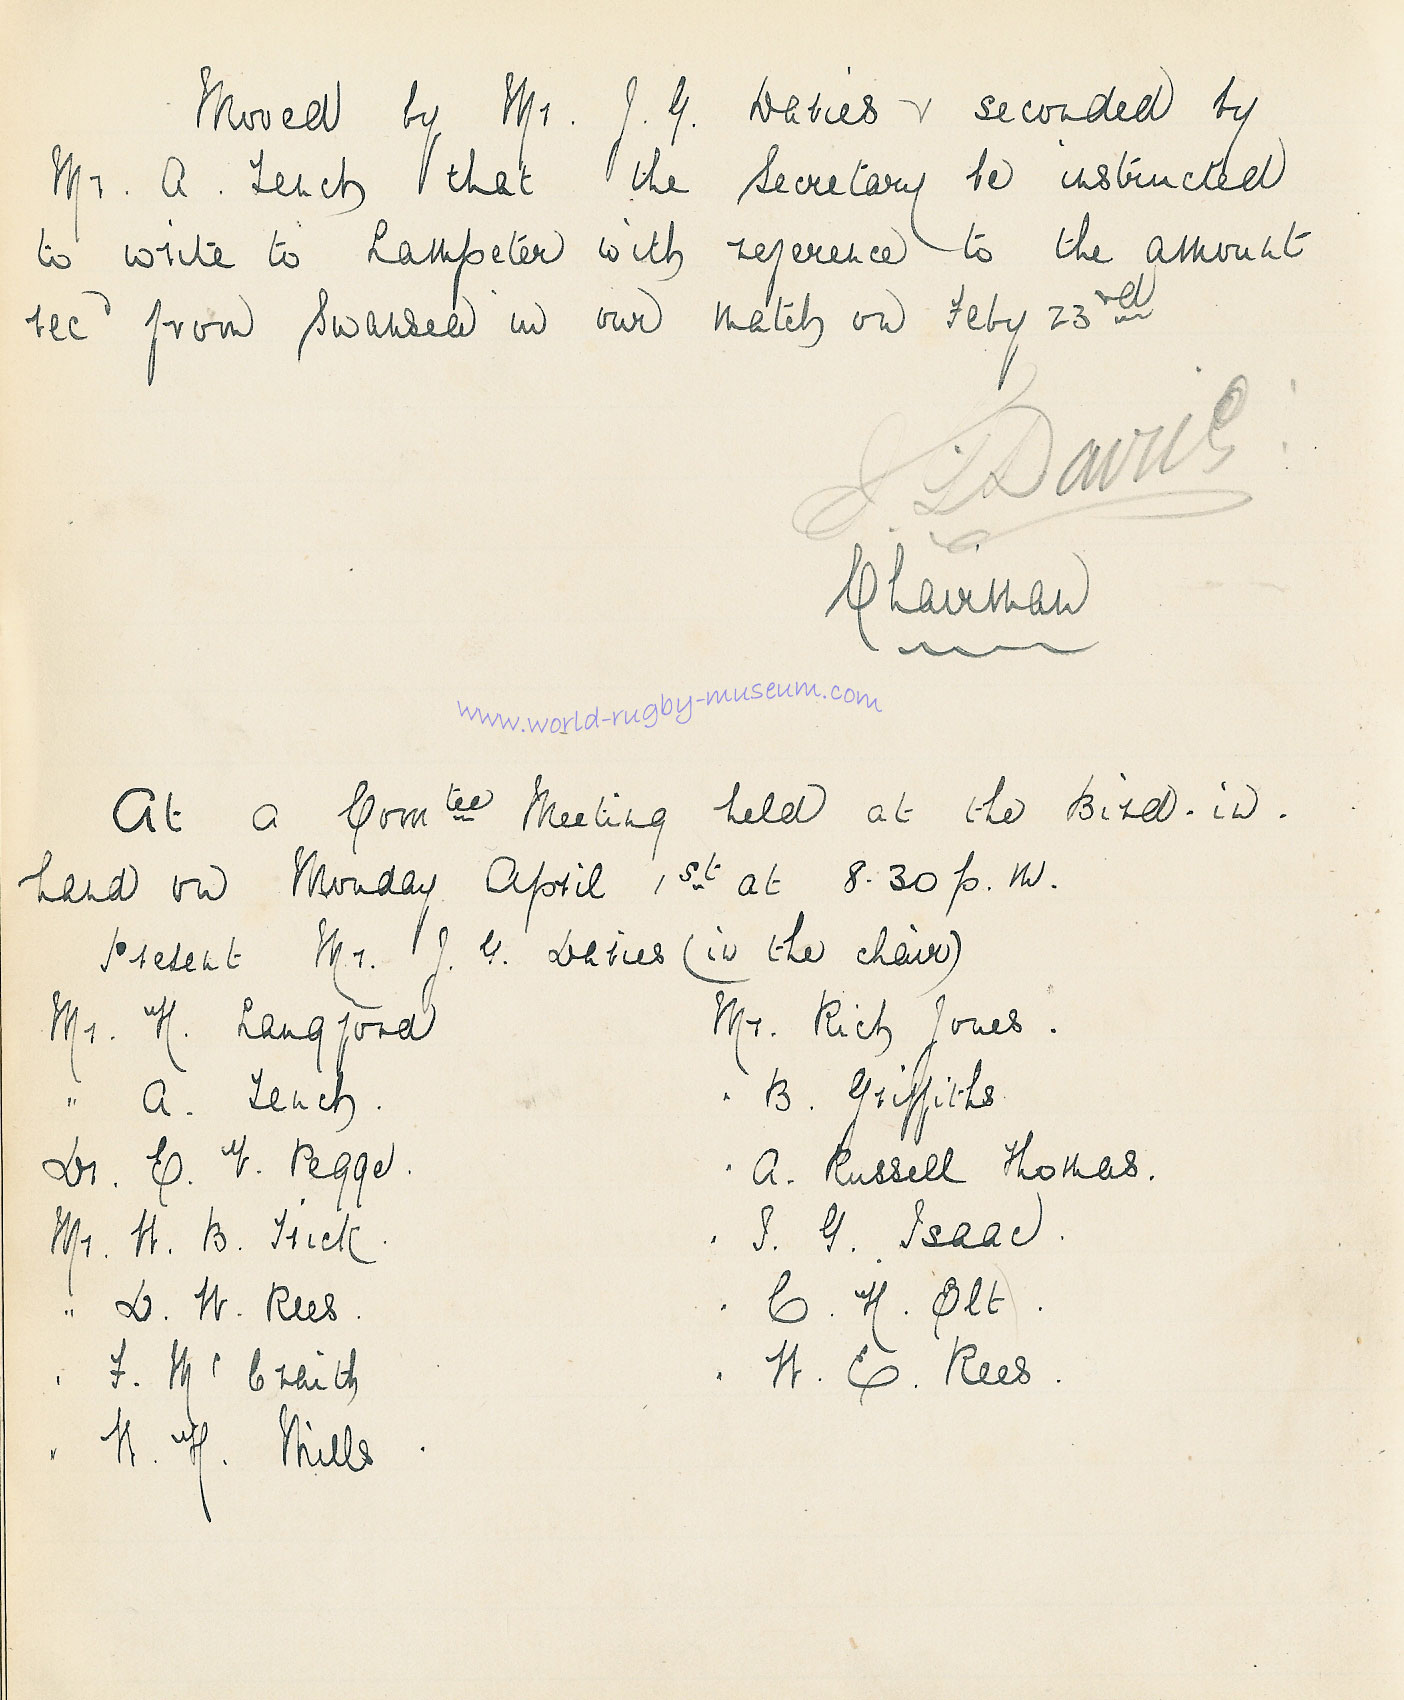 Moved by Mr. J. G. Davies & seconded by
Mr. A. Tench that the Secretary be instructed
to write to Lampeter with reference to the amount
recd from Swansea in our match on Feby 23rd
Davies
Chairman
www.world-rugby-museum.com
At a Comtee Meeting held at the Bird-in-
hand on Monday April 1st at 8.30 p.m.
Present Mr. J. G. Davies (in the chair)
Mr. H. Langford Mr. Rich Jones.
" A. Tench. " B. Griffiths
Dr. E. V. Pegge. " A. Russell Thomas.
Mr. W. B. Trick. " G. Isaac.
" D. W. Rees. " C. H. Olt.
" F. Mc Craith " W. E. Rees.
" W. H. Wills.